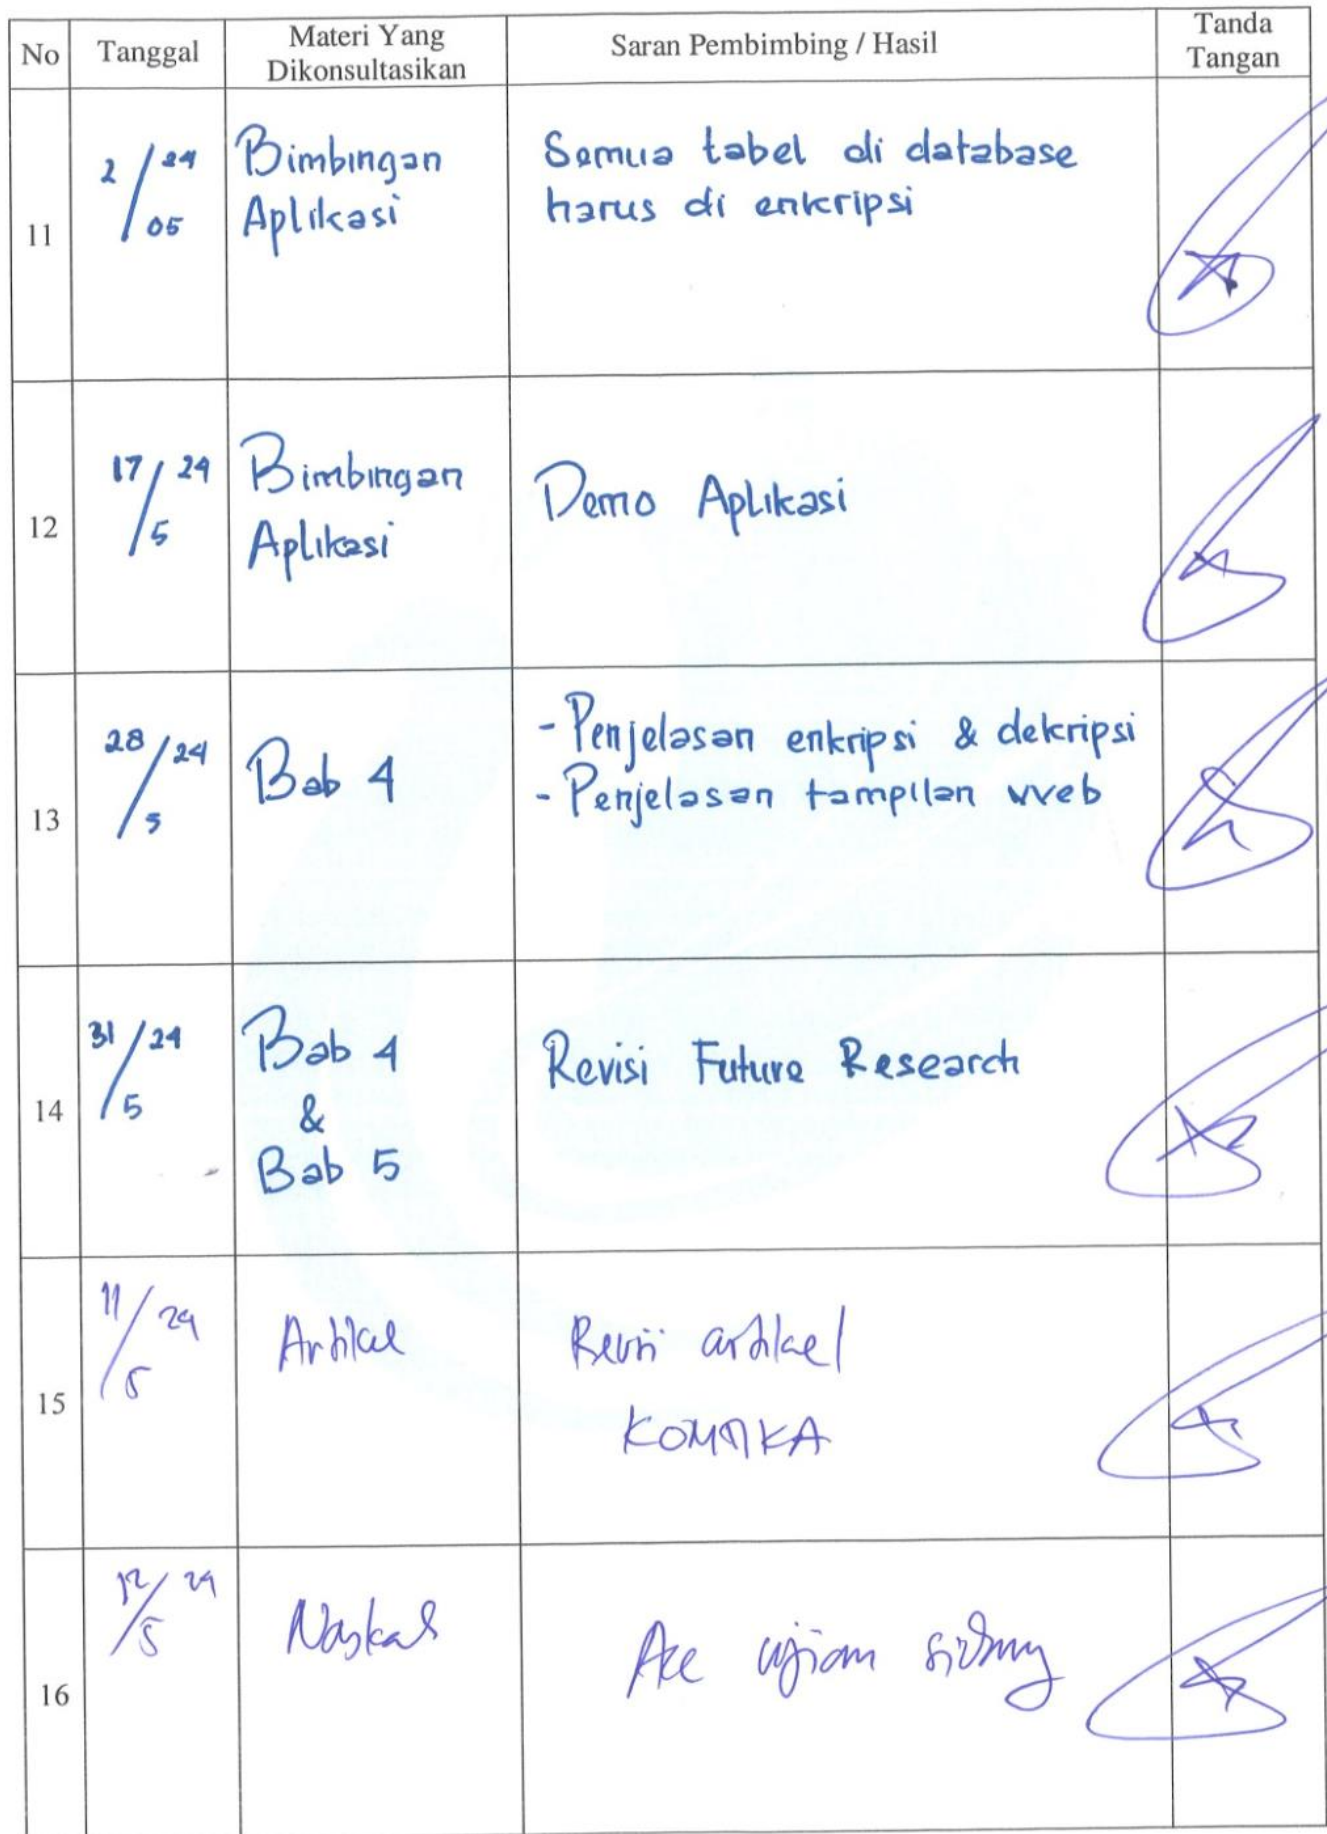 No Tanggal Materi Yang Dikonsultasikan Saran Pembimbing / Hasil Tanda Tangan
11 2/05 24 Bimbingan Semua tabel di database
Aplikasi harus di enkripsi
12 17/5 24 Bimbingan Demo Aplikasi
Aplikasi
13 28/5 24 Bab 4 - Penjelasan enkripsi & dekripsi
- Penjelasan tampilan web
14 31/5 24 Bab 4 Revisi Future Research
&
Bab 5
15 11/5 24 Artikel Revisi artikel
KOMTIKA
16 12/5 24 Naskah Acc ujian sidang